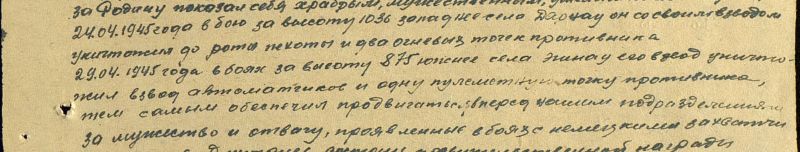 за Родину показал себя храбрым, мужественным,
24.04.1945 года в бою за высоту 1036 западнее села он со своим взводом
уничтожил до роты пехоты и два огневых точек противника
29.04.1945 года в боях за высоту 875 южнее села его взвод уничто-
жил взвод автоматчиков и одну пулеметную точку противника,
тем самым обеспечил продвигаться вперед нашим подразделениям
За мужество и отвагу, проявленные в боях с немецкими захватчи
награды